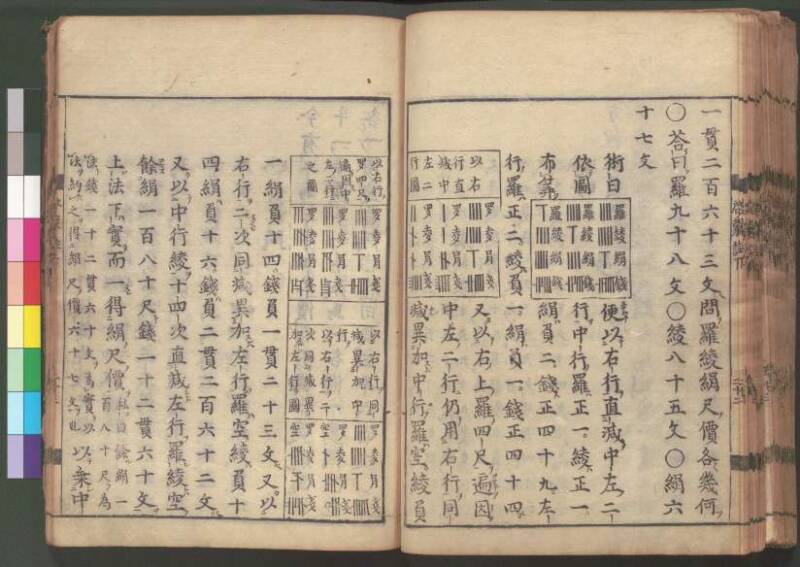 一貫二百六十三文問羅綾絹尺價各幾何
○荅曰羅九十八文○綾八十五文○絹六
十七文
術曰
依圖
布筭
羅綾絹錢
羅綾絹錢
羅綾絹錢
便以右行直减中左二
行中行羅正一綾正一
絹負二錢正四十九左
行羅正二綾負一絹負一錢正四十四
以右
行直
减中
左二
行圖
又以右上羅四尺遍因
中左二行仍用右行同
减異加中行羅空綾負
一絹負十四錢負一貫二十三文又以
右行二次同减異加左行羅空綾負十
四絹負十六錢負二貫二百六十二文
又以中行綾十四次直减左行羅綾空
餘絹一百八十尺錢一十二貫六十文
上法下實而一得絹尺價
以右行
羅四尺
遍因中
左二行
之圖
以右行同
减異加中
行
以右行二
次同减異
加左行圖
法錢一十二貫六十文為實以
法約之得絹尺價六十七文也
以乘中